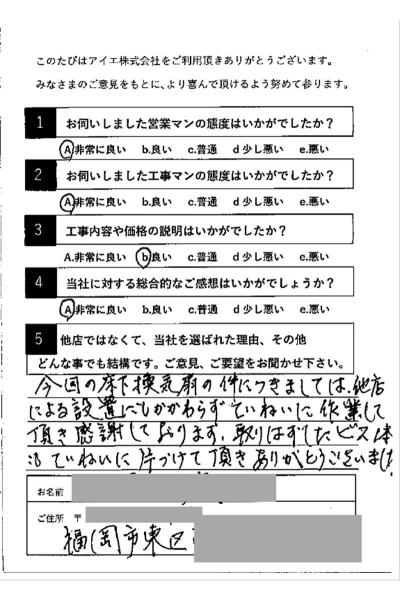 このたびはアイエ株式会社をご利用頂きありがとうございます。
みなさまのご意見をもとに、より喜んで頂けるよう努めて参ります。
1 お伺いしました営業マンの態度はいかがでしたか?
A.非常に良い b.良い c.普通 d 少し悪い e.悪い
2 お伺いしました工事マンの態度はいかがでしたか?
A.非常に良い b.良い c.普通 d 少し悪い e.悪い
3 工事内容や価格の説明はいかがでしたか?
A.非常に良い b.良い c.普通 d 少し悪い e.悪い
4 当社に対する総合的なご感想はいかがでしょうか?
A.非常に良い b.良い c.普通 d 少し悪い e.悪い
5 他店ではなくて、当社を選ばれた理由、その他
どんな事でも結構です。ご意見、ご要望をお聞かせ下さい。
今回の床下換気扇の件につきましては、他店
による設置にもかかわらずていねいに作業して
頂き感謝しております。取りはずしたビス1本
までていねいに片づけて頂きありがとうございました
お名前
ご住所 〒
福岡市東区